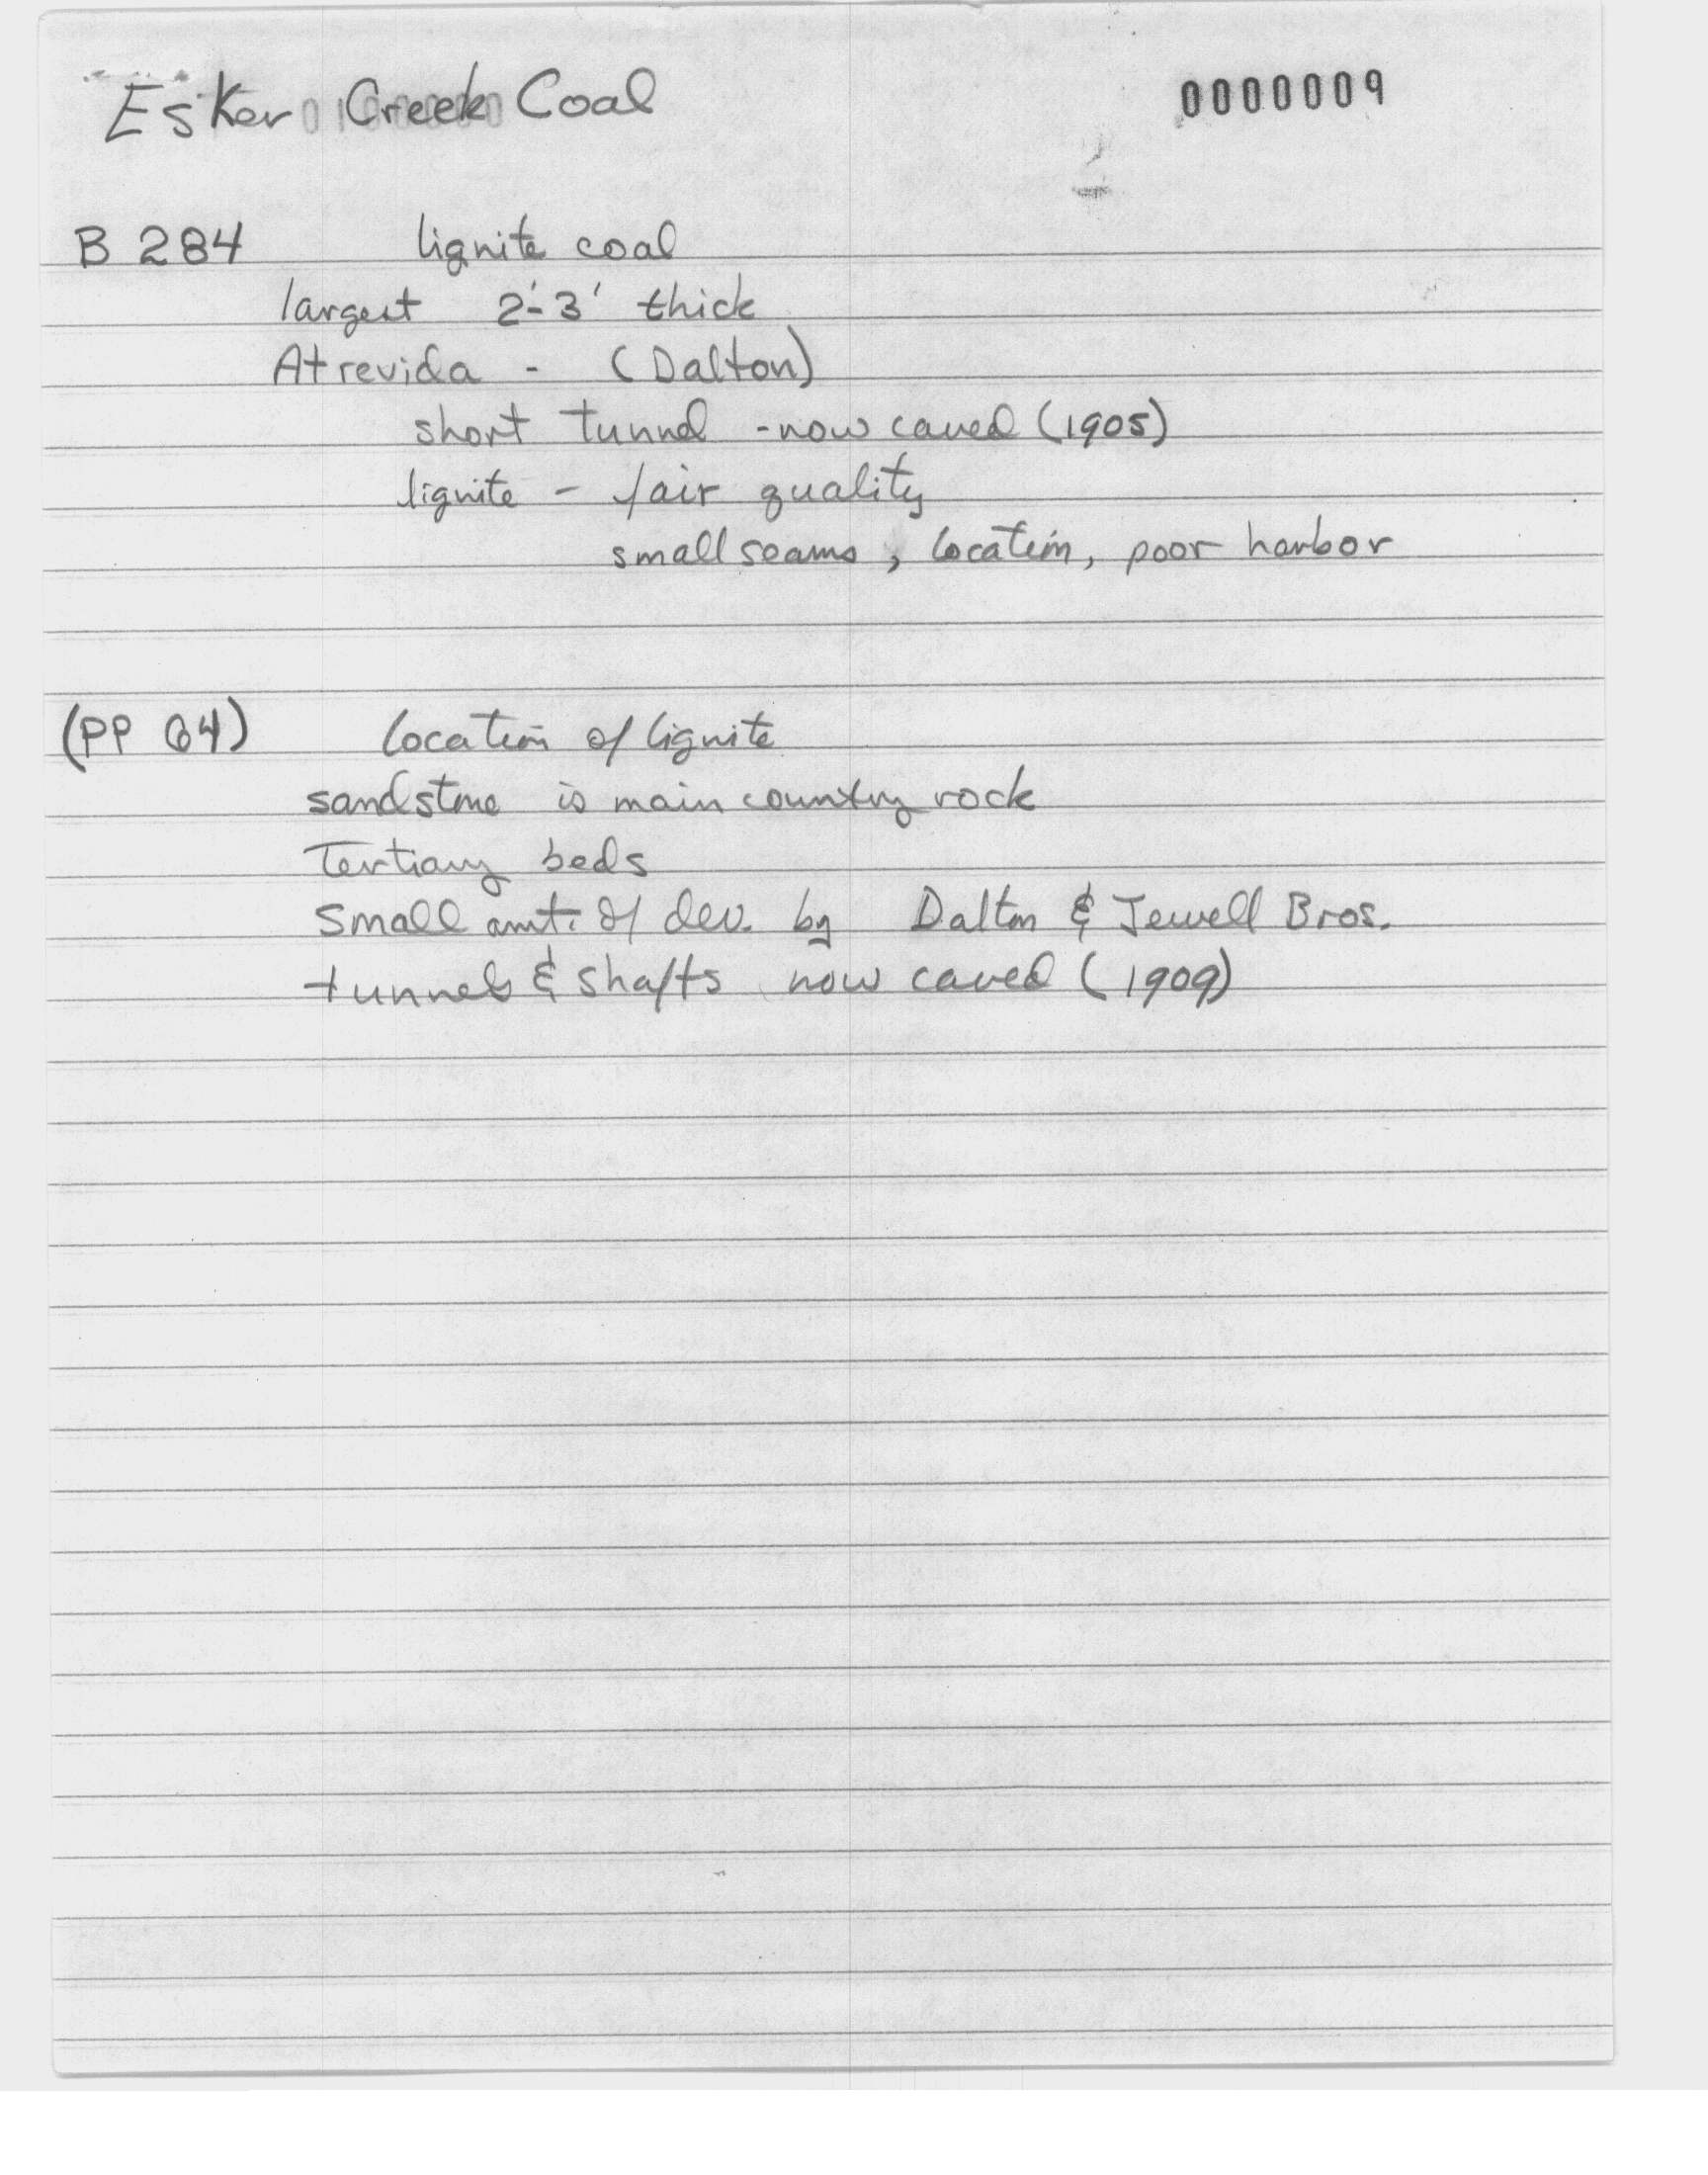 Esker Creek Coal
0000009
B 284 lignite coal
largest 2'-3' thick
Atrevida - (Dalton)
short tunnel - now caved (1905)
lignite - fair quality
small seams, location, poor harbor
(PP 64) location of lignite
sandstone is main country rock
Tertiary beds
Small amt. of dev. by Dalton & Jewell Bros.
tunnels & shafts now caved (1909)